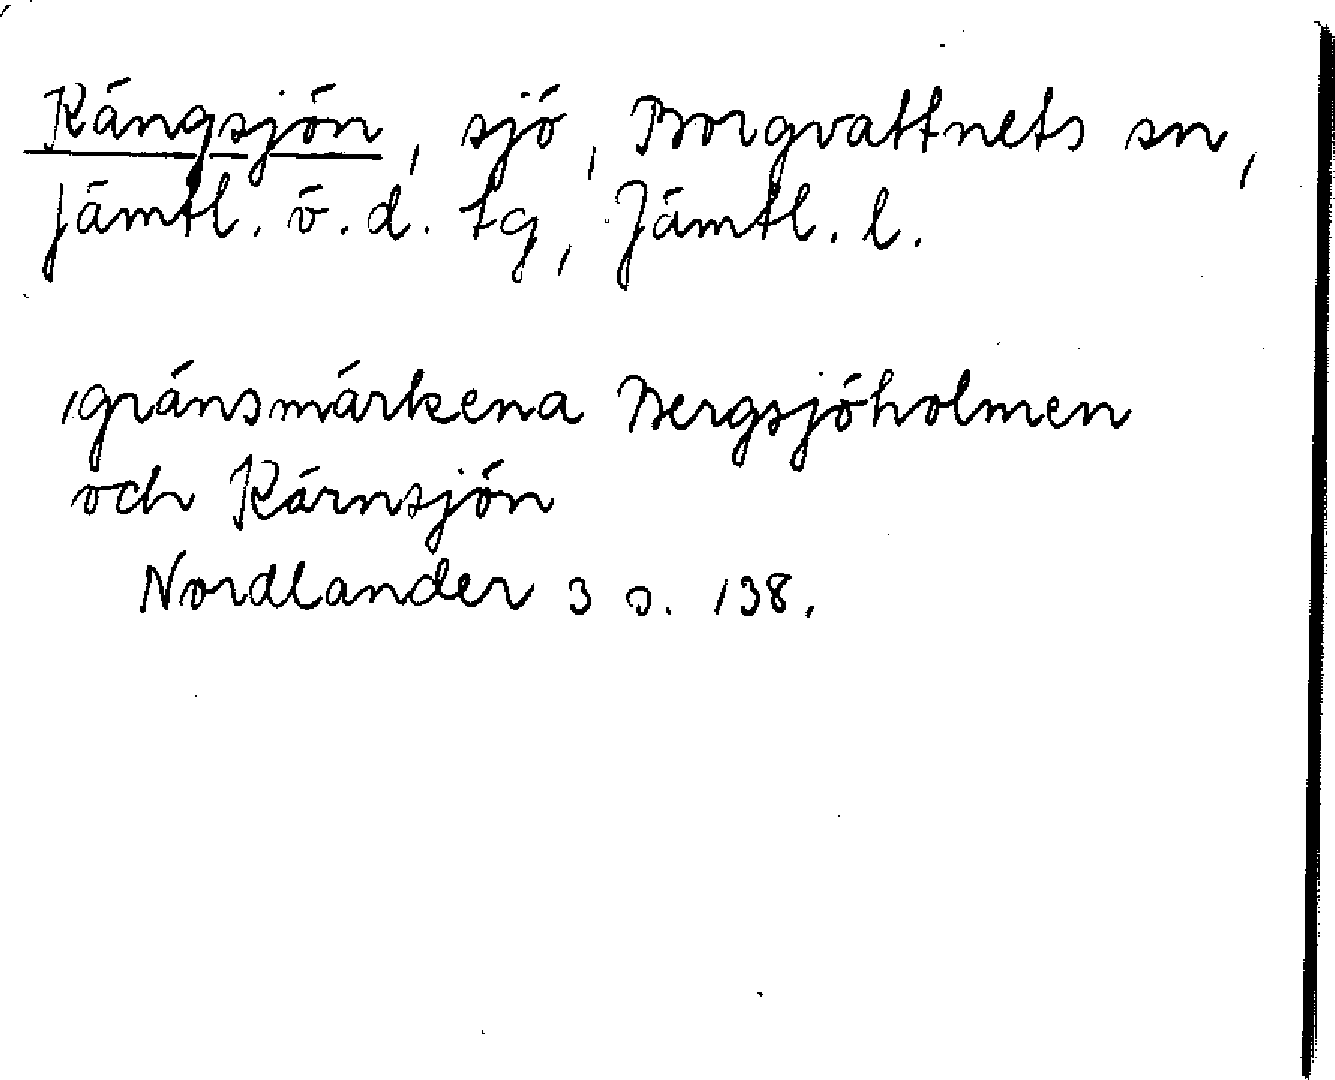 Kängsjön, sjö, Borgvattnets sn,
Jämtl. ö. d. tg, Jämtl. l.
gränsmärkena Bergsjöholmen
och Kärnsjön
Nordlander 3 s. 138.